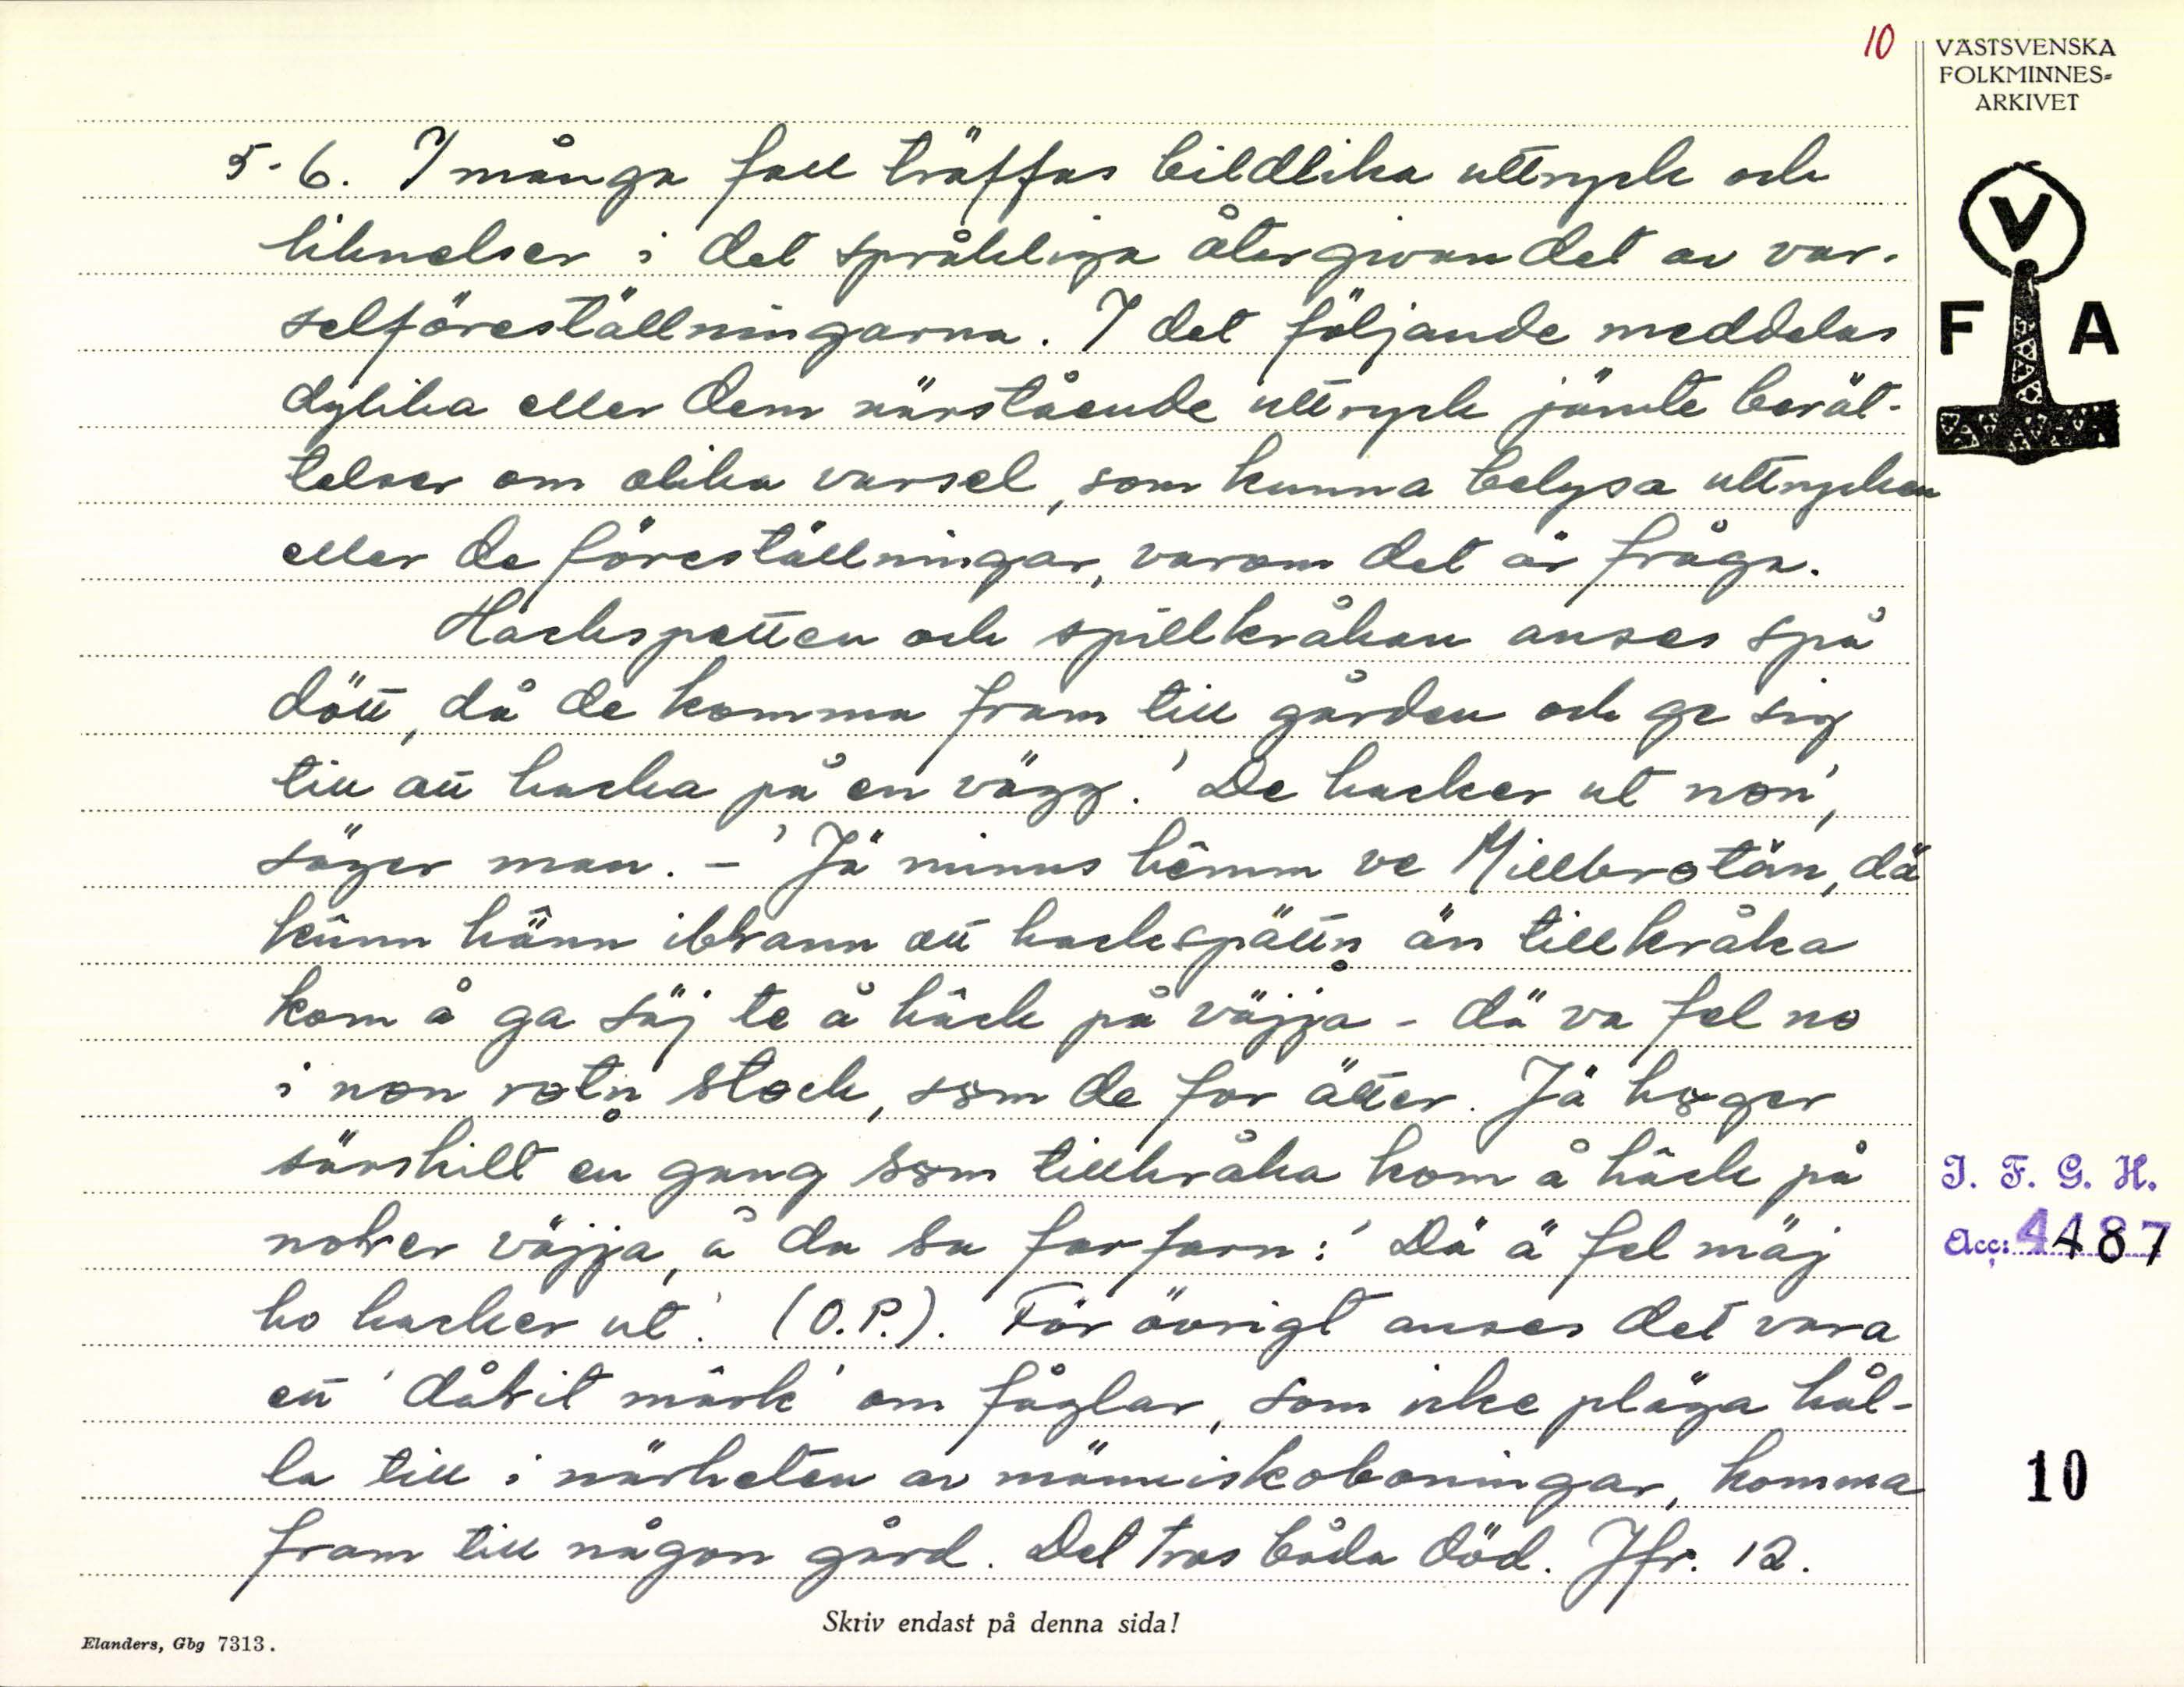 10
VÄSTSVENSKA
FOLKMINNES=
ARKIVET
V
F A
5-6. I många fall träffas bildlika uttryck och
liknelser i det språkliga återgivandet av var-
selföreställningarna. I det följande meddelas
dylika eller dem närstående uttryck jämte berät-
telser om olika varsel, som kunna belysa uttrycken
eller de föreställningar, varom det är fråga.
Hackspetten och spillkråkan anses spå
dött, då de komma fram till gården och ge sig
till att hacka på en vägg. 'De hacker ut non',
säger man. - 'Jä minns hêmm ve Millbrotän, dä
kûnn hänn ibbann att hackspättn än tillkråka
kom å ga säj te å hâck på väjja - dä va fel no
i non rotn stock, som de for ätter. Jä hoger
särskilt en gang som tillkråka kom å hâck på
nober väjja, å da sa farfarn: 'Dä ä fel mäj
ho hacker ut'. (O.P.). För övrigt anses det vara
ett 'dåbit märk' om fåglar, som icke pläga hål-
la till i närheten av människoboningar, komma
fram till någon gård. Det tros båda död. Jfr. 12.
I. F. G. H.
Acc: 4487
10
Skriv endast på denna sida!
Elanders, Gbg 7313.